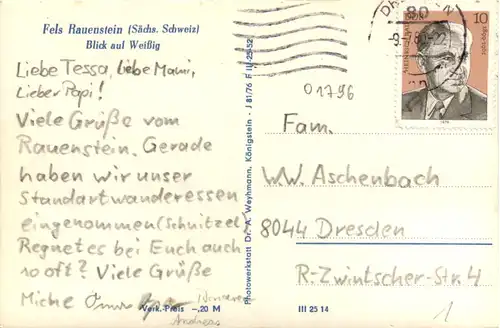 Fels Rauenstein (Sächs. Schweiz)
Blick auf Weißig
Liebe Tessa, Liebe Mami,
Lieber Papi!
Viele Grüße vom
Rauenstein. Gerade
haben wir unser
Standartwanderessen
eingenommen (Schnitzel)
Regnet es bei Euch auch
so oft? Viele Grüße
Miche
Andreas
Verk.-Preis -,20 M
Photowerkstatt Dr. A. Weyhmann, Königstein - J 81/76 F III-25-52
DDR
10
80
01796
Fam.
WW. Aschenbach
8044 Dresden
R.-Zwintscher-Str. 4
III 25 14
1